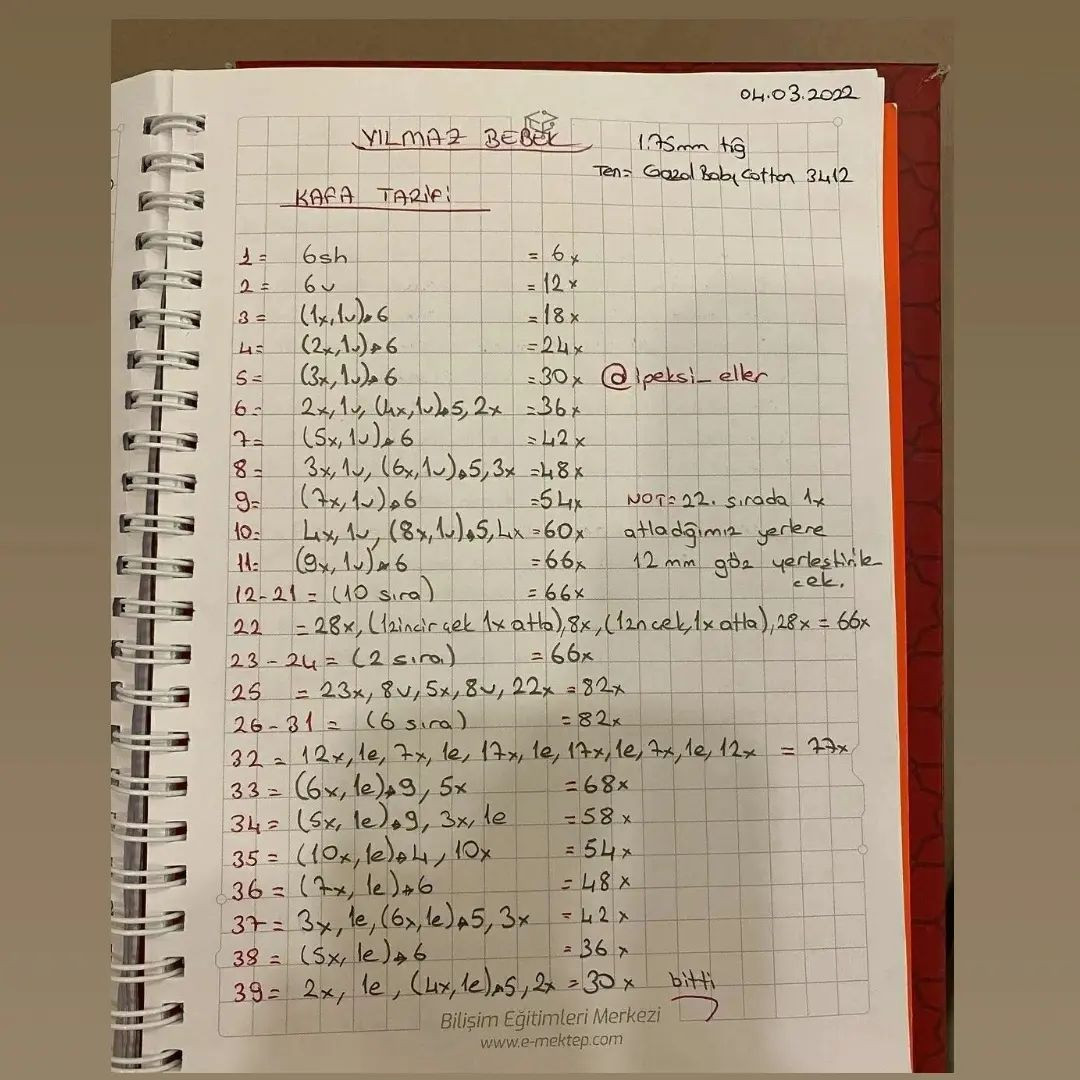 04.03.2022
YILMAZ BEBEK
1.75mm tığ
Ten= Gazal Baby Cotton 3412
KAFA TARİFİ
1= 6sh = 6x
2= 6v = 12x
3= (1x,1v)*6 = 18x
4= (2x,1v)*6 = 24x
5= (3x,1v)*6 = 30x @ipeksi_eller
6= 2x,1v,(4x,1v)*5,2x = 36x
7= (5x,1v)*6 = 42x
8= 3x,1v,(6x,1v)*5,3x = 48x
9= (7x,1v)*6 = 54x NOT= 22. sırada 1x
10= 4x,1v,(8x,1v)*5,4x = 60x atladığımız yerlere
11= (9x,1v)*6 = 66x 12 mm göz yerleştirile
cek.
12-21 = (10 sıra) = 66x
22 = 28x,(1zincir çek 1x atla),8x,(1zn çek,1x atla),28x = 66x
23-24 = (2 sıra) = 66x
25 = 23x, 8v, 5x, 8v, 22x = 82x
26-31 = (6 sıra) = 82x
32 = 12x,1e,7x,1e,17x,1e,17x,1e,7x,1e,12x = 77x
33 = (6x,1e)*9,5x = 68x
34 = (5x,1e)*9,3x,1e = 58x
35 = (10x,1e)*4,10x = 54x
36 = (7x,1e)*6 = 48x
37 = 3x,1e,(6x,1e)*5,3x = 42x
38 = (5x,1e)*6 = 36x
39 = 2x,1e,(4x,1e)*5,2x = 30x bitti
Bilişim Eğitimleri Merkezi
www.e-mektep.com